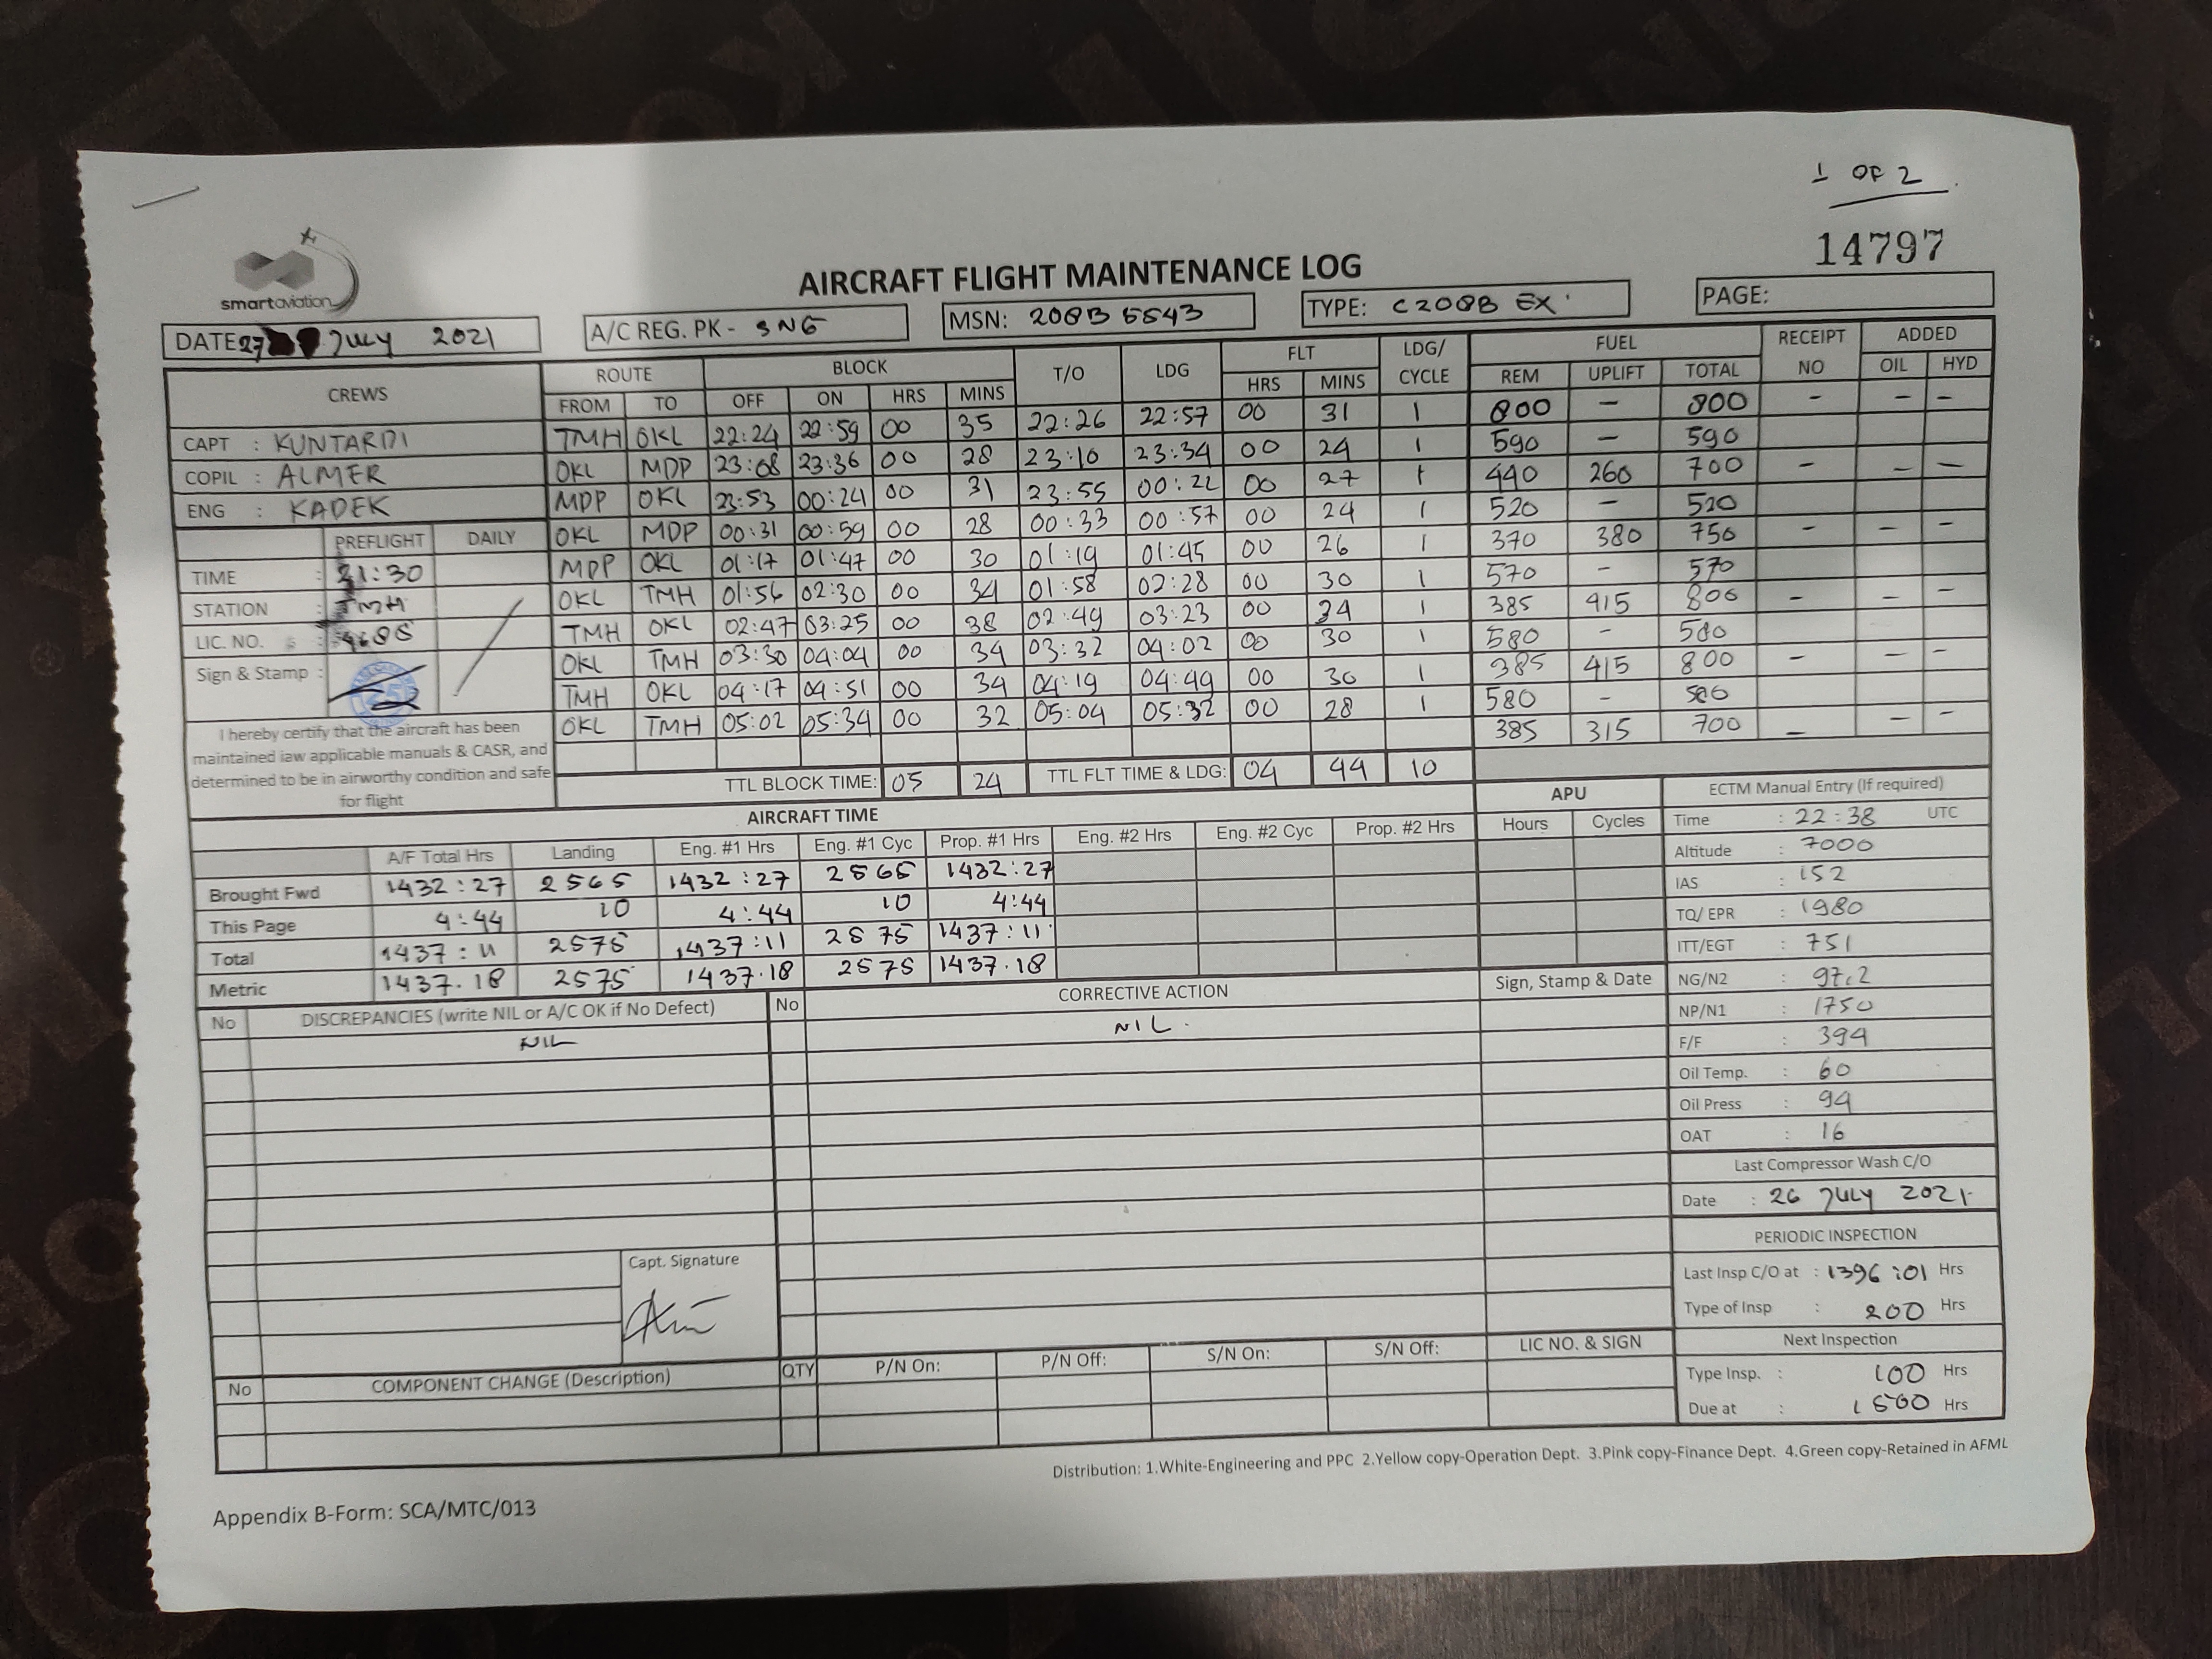 1 OF 2
14797
smartaviation
AIRCRAFT FLIGHT MAINTENANCE LOG
DATE 27 JULY 2021 A/C REG. PK - SNG MSN: 208B 5543 TYPE: C208B EX PAGE:
CREWS ROUTE BLOCK T/O LDG FLT LDG/ CYCLE FUEL RECEIPT NO ADDED
FROM TO OFF ON HRS MINS HRS MINS REM UPLIFT TOTAL OIL HYD
CAPT : KUNTARDI
COPIL : ALMER
ENG : KADEK
TMH OKL 22:24 22:59 00 35 22:26 22:57 00 31 1 800 - 800 - - -
OKL MDP 23:08 23:36 00 28 23:10 23:34 00 24 1 590 - 590
MDP OKL 23:53 00:24 00 31 23:55 00:22 00 27 1 440 260 700 - - -
OKL MDP 00:31 00:59 00 28 00:33 00:57 00 24 1 520 - 520
MDP OKL 01:17 01:47 00 30 01:19 01:45 00 26 1 370 380 750 - - -
OKL TMH 01:56 02:30 00 34 01:58 02:28 00 30 1 570 - 570
TMH OKL 02:47 03:25 00 38 02:49 03:23 00 34 1 385 415 800 - - -
OKL TMH 03:30 04:04 00 34 03:32 04:02 00 30 1 580 - 580
TMH OKL 04:17 04:51 00 34 04:19 04:49 00 30 1 385 415 800 - - -
OKL TMH 05:02 05:34 00 32 05:04 05:32 00 28 1 580 - 580
385 315 700 - - -
PREFLIGHT DAILY
TIME : 21:30
STATION : TMH
LIC. NO. :
Sign & Stamp :
I hereby certify that the aircraft has been
maintained iaw applicable manuals & CASR, and
determined to be in airworthy condition and safe
for flight
TTL BLOCK TIME: 05 24 TTL FLT TIME & LDG: 04 44 10
AIRCRAFT TIME APU
A/F Total Hrs Landing Eng. #1 Hrs Eng. #1 Cyc Prop. #1 Hrs Eng. #2 Hrs Eng. #2 Cyc Prop. #2 Hrs Hours Cycles
Brought Fwd 1432:27 2565 1432:27 2565 1432:27
This Page 4:44 10 4:44 10 4:44
Total 1437:11 2575 1437:11 2575 1437:11
Metric 1437.18 2575 1437.18 2575 1437.18
ECTM Manual Entry (If required)
Time : 22:38 UTC
Altitude : 7000
IAS : 152
TQ/ EPR : 1980
ITT/EGT : 751
NG/N2 : 97.2
NP/N1 : 1750
F/F : 394
Oil Temp. : 60
Oil Press : 94
OAT : 16
Last Compressor Wash C/O
Date : 26 JULY 2021
PERIODIC INSPECTION
Last Insp C/O at : 1396:01 Hrs
Type of Insp : 200 Hrs
Next Inspection
Type Insp. : 100 Hrs
Due at : 1500 Hrs
No DISCREPANCIES (write NIL or A/C OK if No Defect) No CORRECTIVE ACTION Sign, Stamp & Date
NIL NIL.
Capt. Signature
No COMPONENT CHANGE (Description) QTY P/N On: P/N Off: S/N On: S/N Off: LIC NO. & SIGN
Distribution: 1.White-Engineering and PPC 2.Yellow copy-Operation Dept. 3.Pink copy-Finance Dept. 4.Green copy-Retained in AFML
Appendix B-Form: SCA/MTC/013